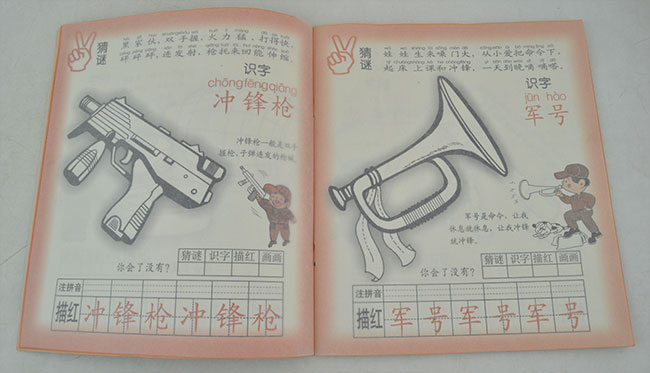 猜谜
黑家伙，双手握，火力猛，打得快，
砰砰砰，连发射，枪托来回能伸缩。
识字
chōngfēngqiāng
冲锋枪
冲锋枪一般是双手
握枪、子弹连发的枪械
猜谜 识字 描红 画画
你会了没有？
注拼音
描红 冲锋枪冲锋枪
猜谜
娃娃生来嗓门大，从小爱把命令下，
起床上课和冲锋，一天到晚嘀嘀嗒。
识字
jūn hào
军号
军号是命令，让我
休息就休息，让我冲锋
就冲锋。
猜谜 识字 描红 画画
你会了没有？
注拼音
描红 军号军号军号